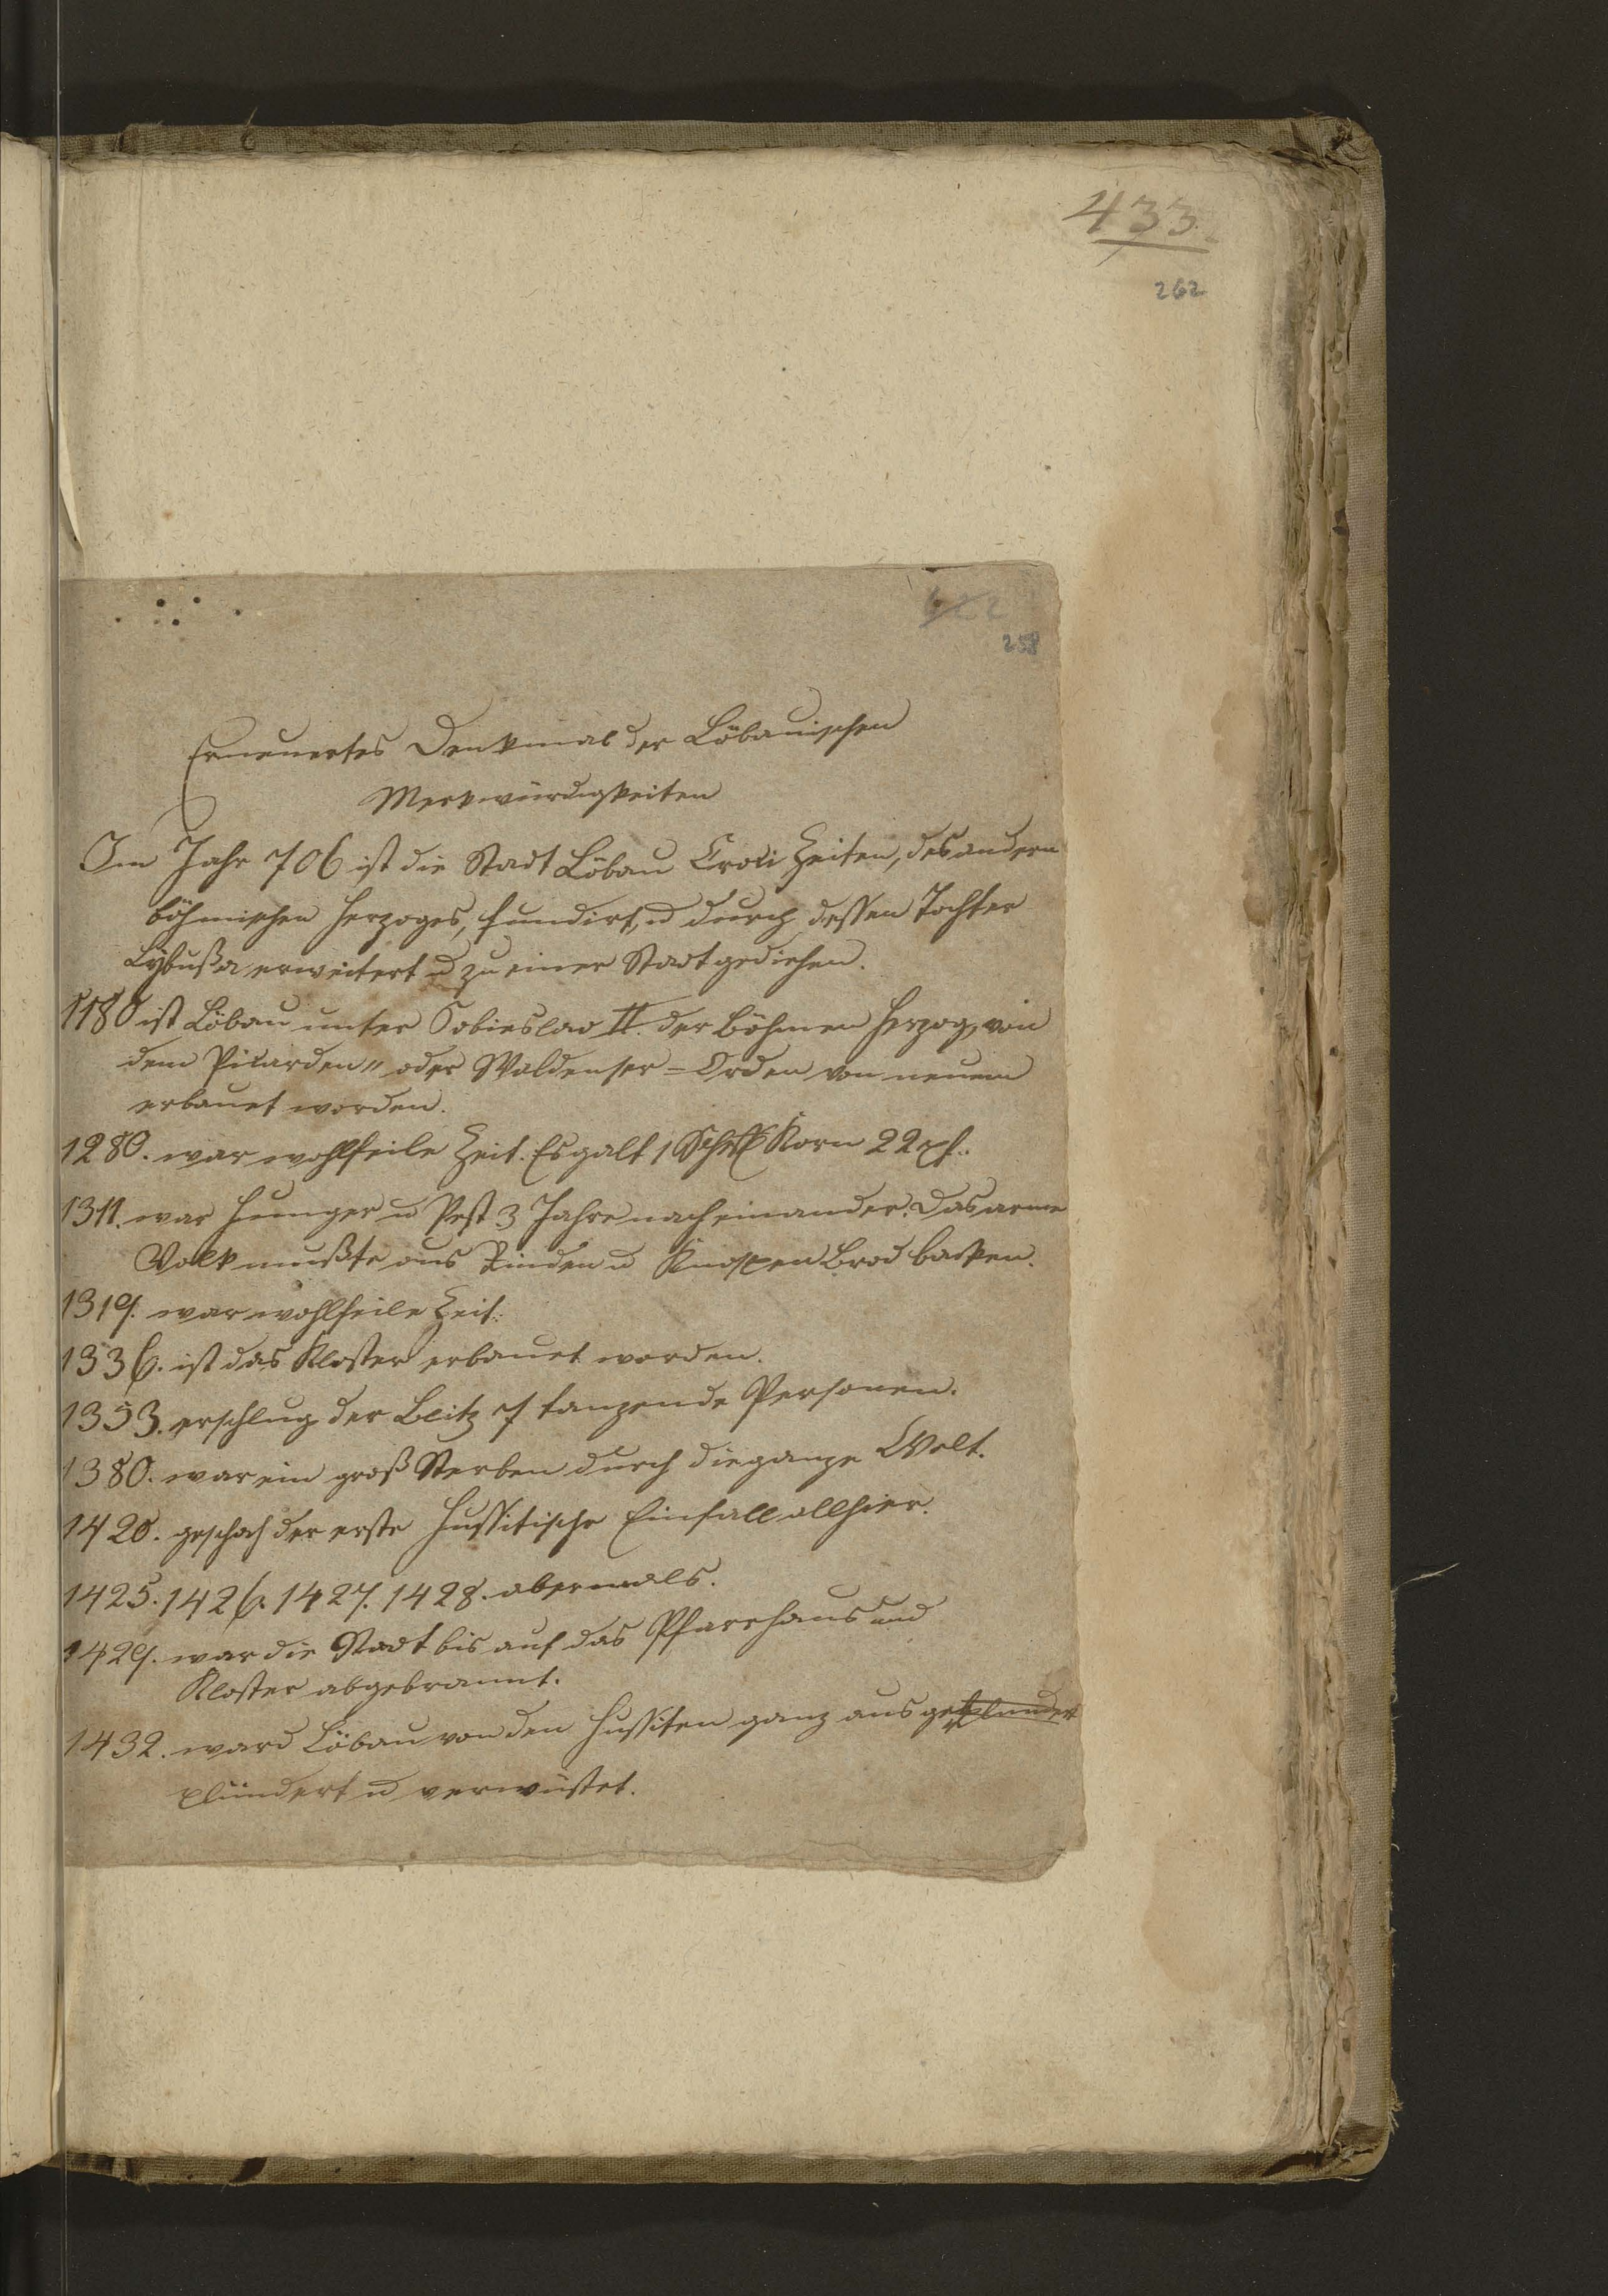 433.
262
258
Erneuertes Denkmal der Löbauischen
Merkwürdigkeiten
Im Jahr 706 ist die Stadt Löbau Croci Zeiten, des andern
böhmischen Herzoges, fundirt, u durch dessen Tochter
Lybußa erweitert u zu einer Stadt gediehen.
1180 ist Löbau unter Sobieslao II. der Böhmen Herzog, von
dem Picarden" oder Waldenser=Orden von neuem
erbauet worden.
1280. war wohlfeile Zeit. Es galt 1 Scheff Korn 22 pf.
1311. war Hunger u Pest 3 Jahre nach einander. Das arme
Volk mußte aus Rinden u Knospen Brod backen.
1319. war wohlfeile Zeit.
1336. ist das Kloster erbauet worden.
1353. erschlug der Blitz 7 tanzende Personen.
1380. war ein groß Sterben durch die ganze Welt.
1420. geschah der erste Hussitische Einfall allhier.
1425. 1426. 1427. 1428. abermals.
1429. war die Stadt bis auf das Pfarrhaus und
Kloster abgebrannt.
1432. ward Löbau von den Hussiten ganz ausgeplundert
plündert u verwüstet.